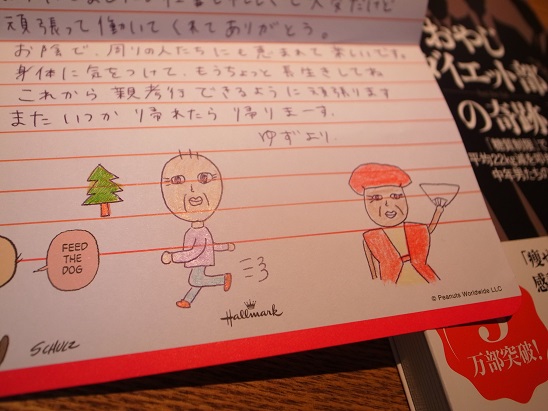 頑張って働いてくれてありがとう。
お陰で、周りの人たちにも恵まれて楽しいです。
身体に気をつけて、もうちょっと長生きしてね
これから親孝行できるように頑張ります
またいつか帰れたら帰りまーす。
ゆずより.
FEED
THE
DOG
SCHULZ
Hallmark
© Peanuts Worldwide LLC
おやじ
ダイエット部
の奇跡
「糖質制限」で
中年男たちの
「痩せ
感
万部突破!